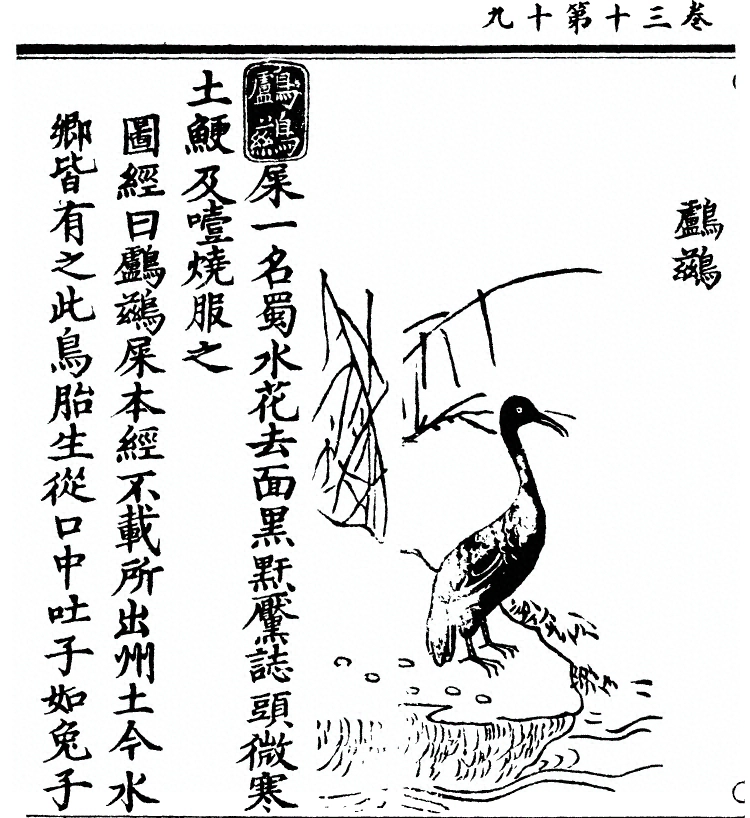 卷三十第十九
鸕鷀
鸕鷀屎一名蜀水花去面黑䵟黶誌頭微寒
土鯁及噎燒服之
圖經曰鸕鷀屎本經不載所出州土今水
鄉皆有之此鳥胎生從口中吐子如兔子